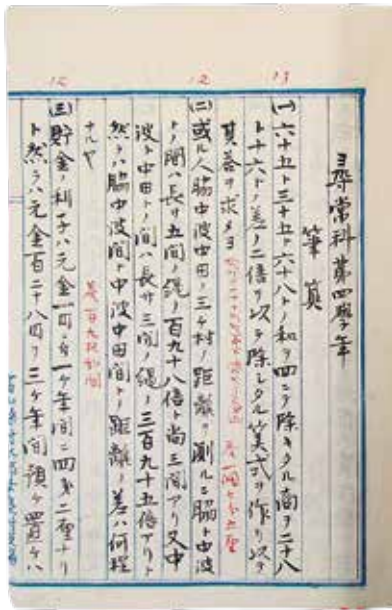 尋常科第四學年
筆算
13
(一)六十五ト三十五ト六十八トノ和ヲ四ニテ除キタル商ヲ二十八
ト十六トノ差ノ二倍ヲ以テ除シタル算式ヲ作リ以テ
其答ヲ求メヨ
12
(二)或ル人脇中波中田ノ三ケ村ノ距離ヲ測ルニ脇ト中波
トノ間ハ長サ五間ノ縄ノ百九十八倍ト尚三間アリ又中
波ト中田トノ間ハ長サ三間ノ縄ノ三百九十五倍アリト
然ラハ脇中波間ト中波中田間トノ距離ノ差ハ何程
ナルヤ
15
(三)貯金ノ利子ハ元金一円ニ付一ケ年間ニ四銭二厘ナリ
ト然ラハ元金百二十八円ヲ三ケ年間預ケ置ケハ